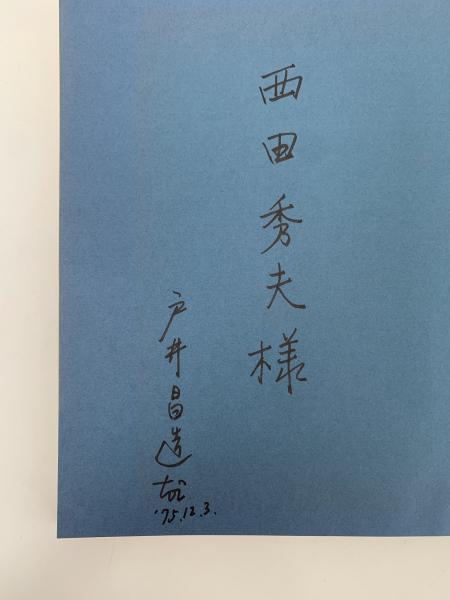 西田秀夫様
戸井昌造
'75.12.3.